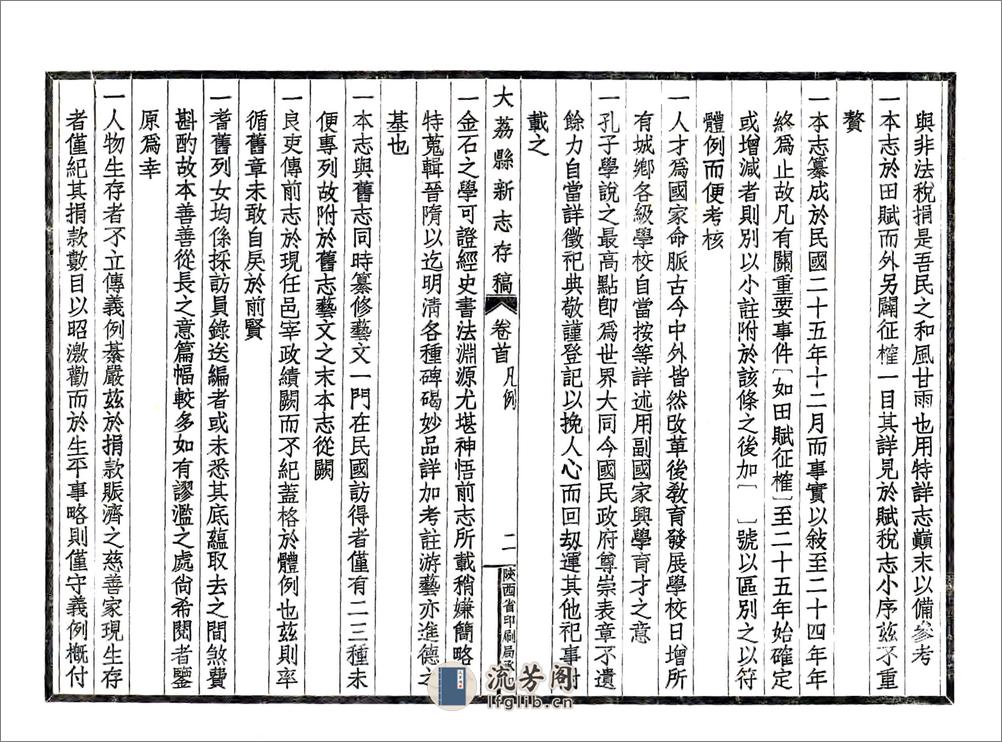 與非法稅捐是吾民之和風甘雨也用特詳志巔末以備參考
一本志於田賦而外另闢征榷一目其詳見於賦稅志小序茲不重
贅
一本志纂成於民國二十五年十二月而事實以敍至二十四年年
終爲止故凡有關重要事件〔如田賦征榷〕至二十五年始確定
或增減者則別以小註附於該條之後加〔　〕號以區別之以符
體例而便考核
一人才爲國家命脈古今中外皆然改革後敎育發展學校日增所
有城鄉各級學校自當按等詳述用副國家興學育才之意
一孔子學說之最高點卽爲世界大同今國民政府尊崇表章不遺
餘力自當詳徵祀典敬謹登記以挽人心而回刼運其他祀事附
載之
大荔縣新志存稿
卷首
凡例
二
陝西省印刷局承
一金石之學可證經史書法淵源尤堪神悟前志所載稍嫌簡略
特蒐輯晉隋以迄明清各種碑碣妙品詳加考註游藝亦進德之
基也
一本志與舊志同時纂修藝文一門在民國訪得者僅有二三種未
便專列故附於舊志藝文之末本志從闕
一良吏傳前志於現任邑宰政績闕而不紀蓋格於體例也茲則率
循舊章未敢自戾於前賢
一耆舊列女均係採訪員錄送編者或未悉其底蘊取去之間煞費
斟酌故本善善從長之意篇幅較多如有謬濫之處尙希閱者鑒
原爲幸
一人物生存者不立傳義例綦嚴茲於捐款賑濟之慈善家現生存
者僅紀其捐款數目以昭激勸而於生平事略則僅守義例槪付
流芳阁
lfglib.cn